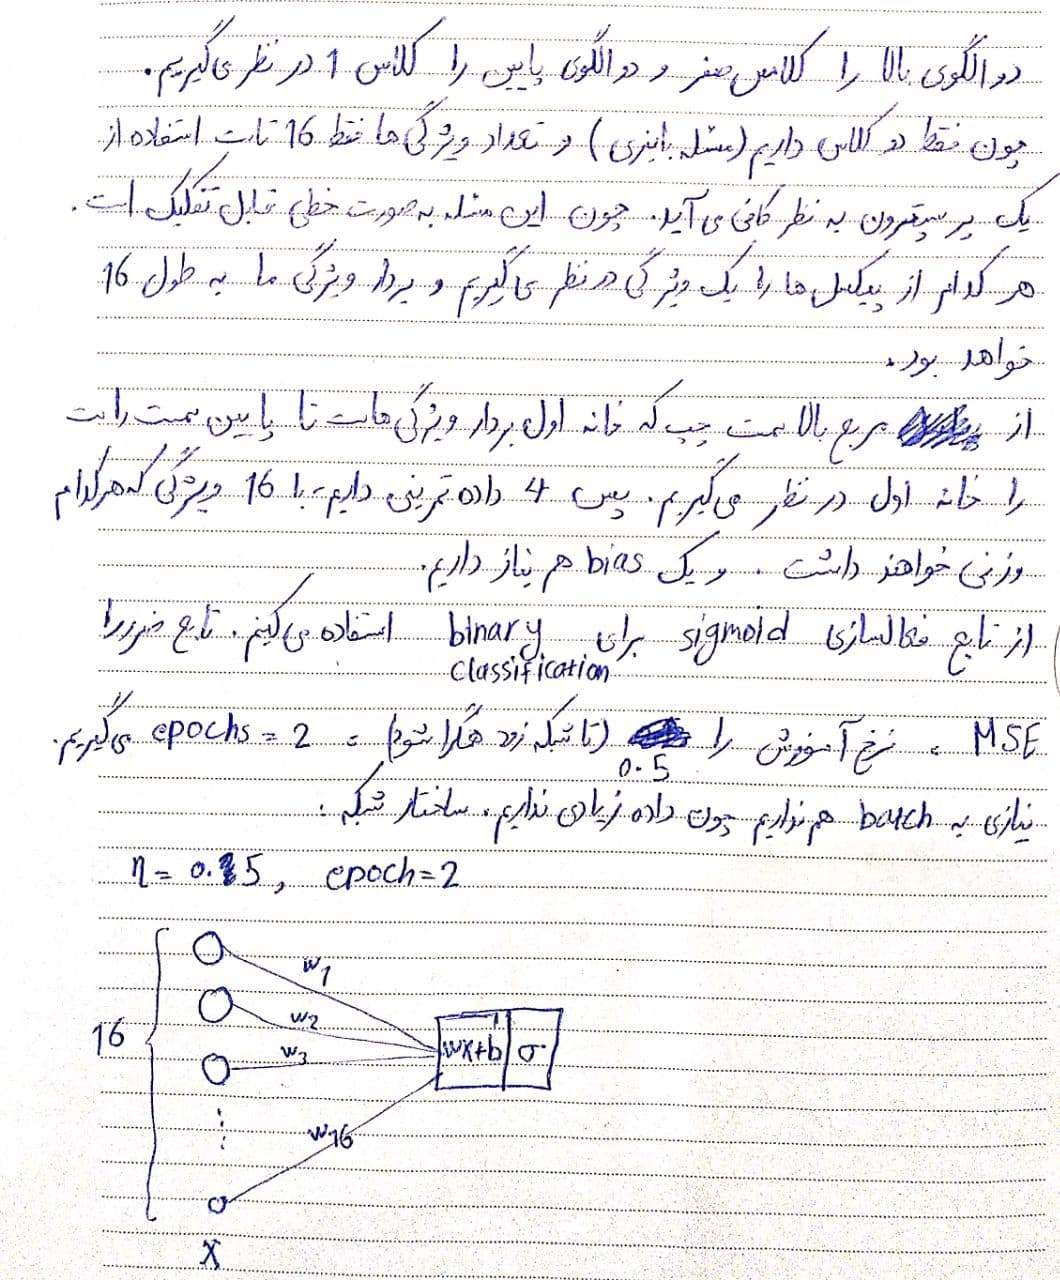 دو الگوی بالا را کلاس صفر و دو الگوی پایین را کلاس 1 در نظر می‌گیریم.
چون فقط دو کلاس داریم (مسئله باینری) و تعداد ویژگی‌ها فقط 16 تاست استفاده از
یک پرسپترون به نظر کافی می‌آید. چون این مسئله به صورت خطی قابل تفکیک است.
هر کدام از پیکسل‌ها را یک ویژگی در نظر می‌گیریم و بردار ویژگی ما به طول 16
خواهد بود.
از مربع بالا سمت چپ که خانه اول بردار ویژگی ماست تا پایین سمت راست
را خانه اول در نظر می‌گیریم. پس 4 داده تمرینی داریم، با 16 ویژگی که هرکدام
وزنی خواهند داشت. و یک bias هم نیاز داریم.
از تابع فعالسازی sigmoid برای binary classification استفاده می‌کنیم. تابع ضرر را
MSE، نرخ آموزش را 0.5 (تا شبکه زود همگرا شود)، epochs = 2 می‌گیریم.
نیازی به batch هم نداریم چون داده زیادی نداریم. ساختار شبکه:
η = 0.5, epoch=2
w1
w2
16
w3
wx+b σ
w16
X